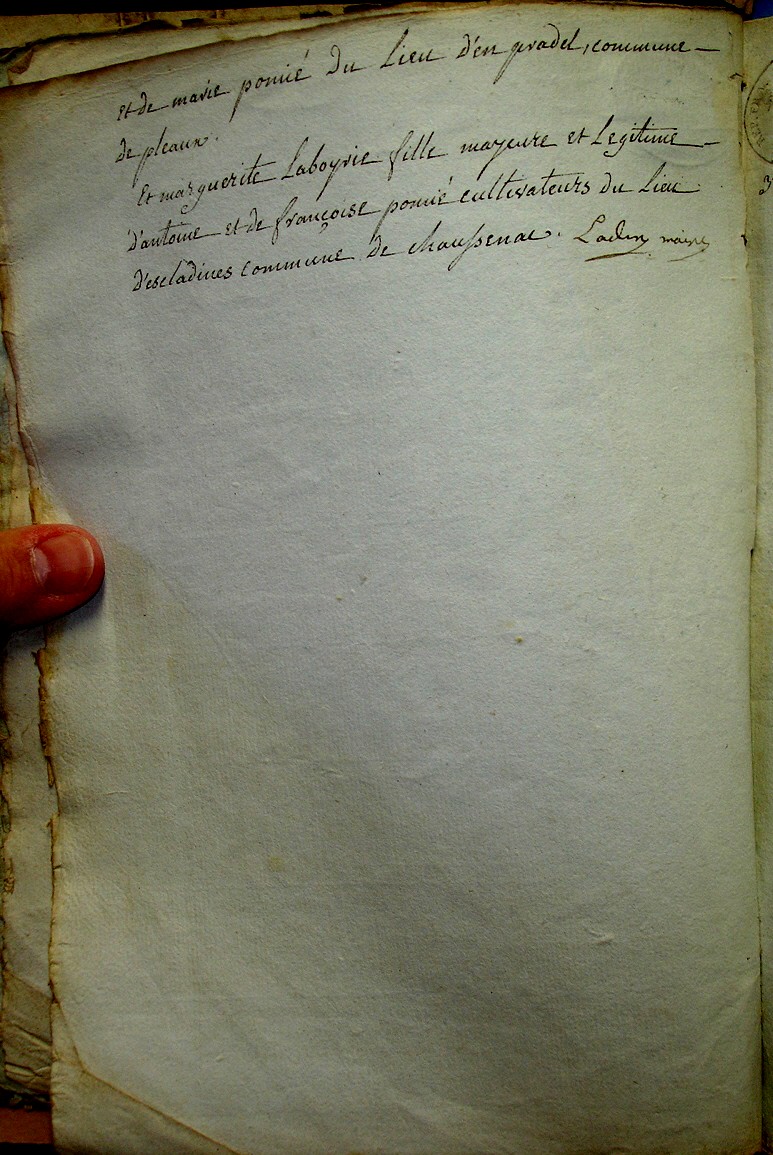 et de marie pomié du Lieu d'en pradel, commune —
de pleaux.
Et marguerite Laboyrie fille mayeure et Legitime —
d'antoine et de françoise pomié cultivateurs du Lieu
d'escladines commune de chaussenac. maire